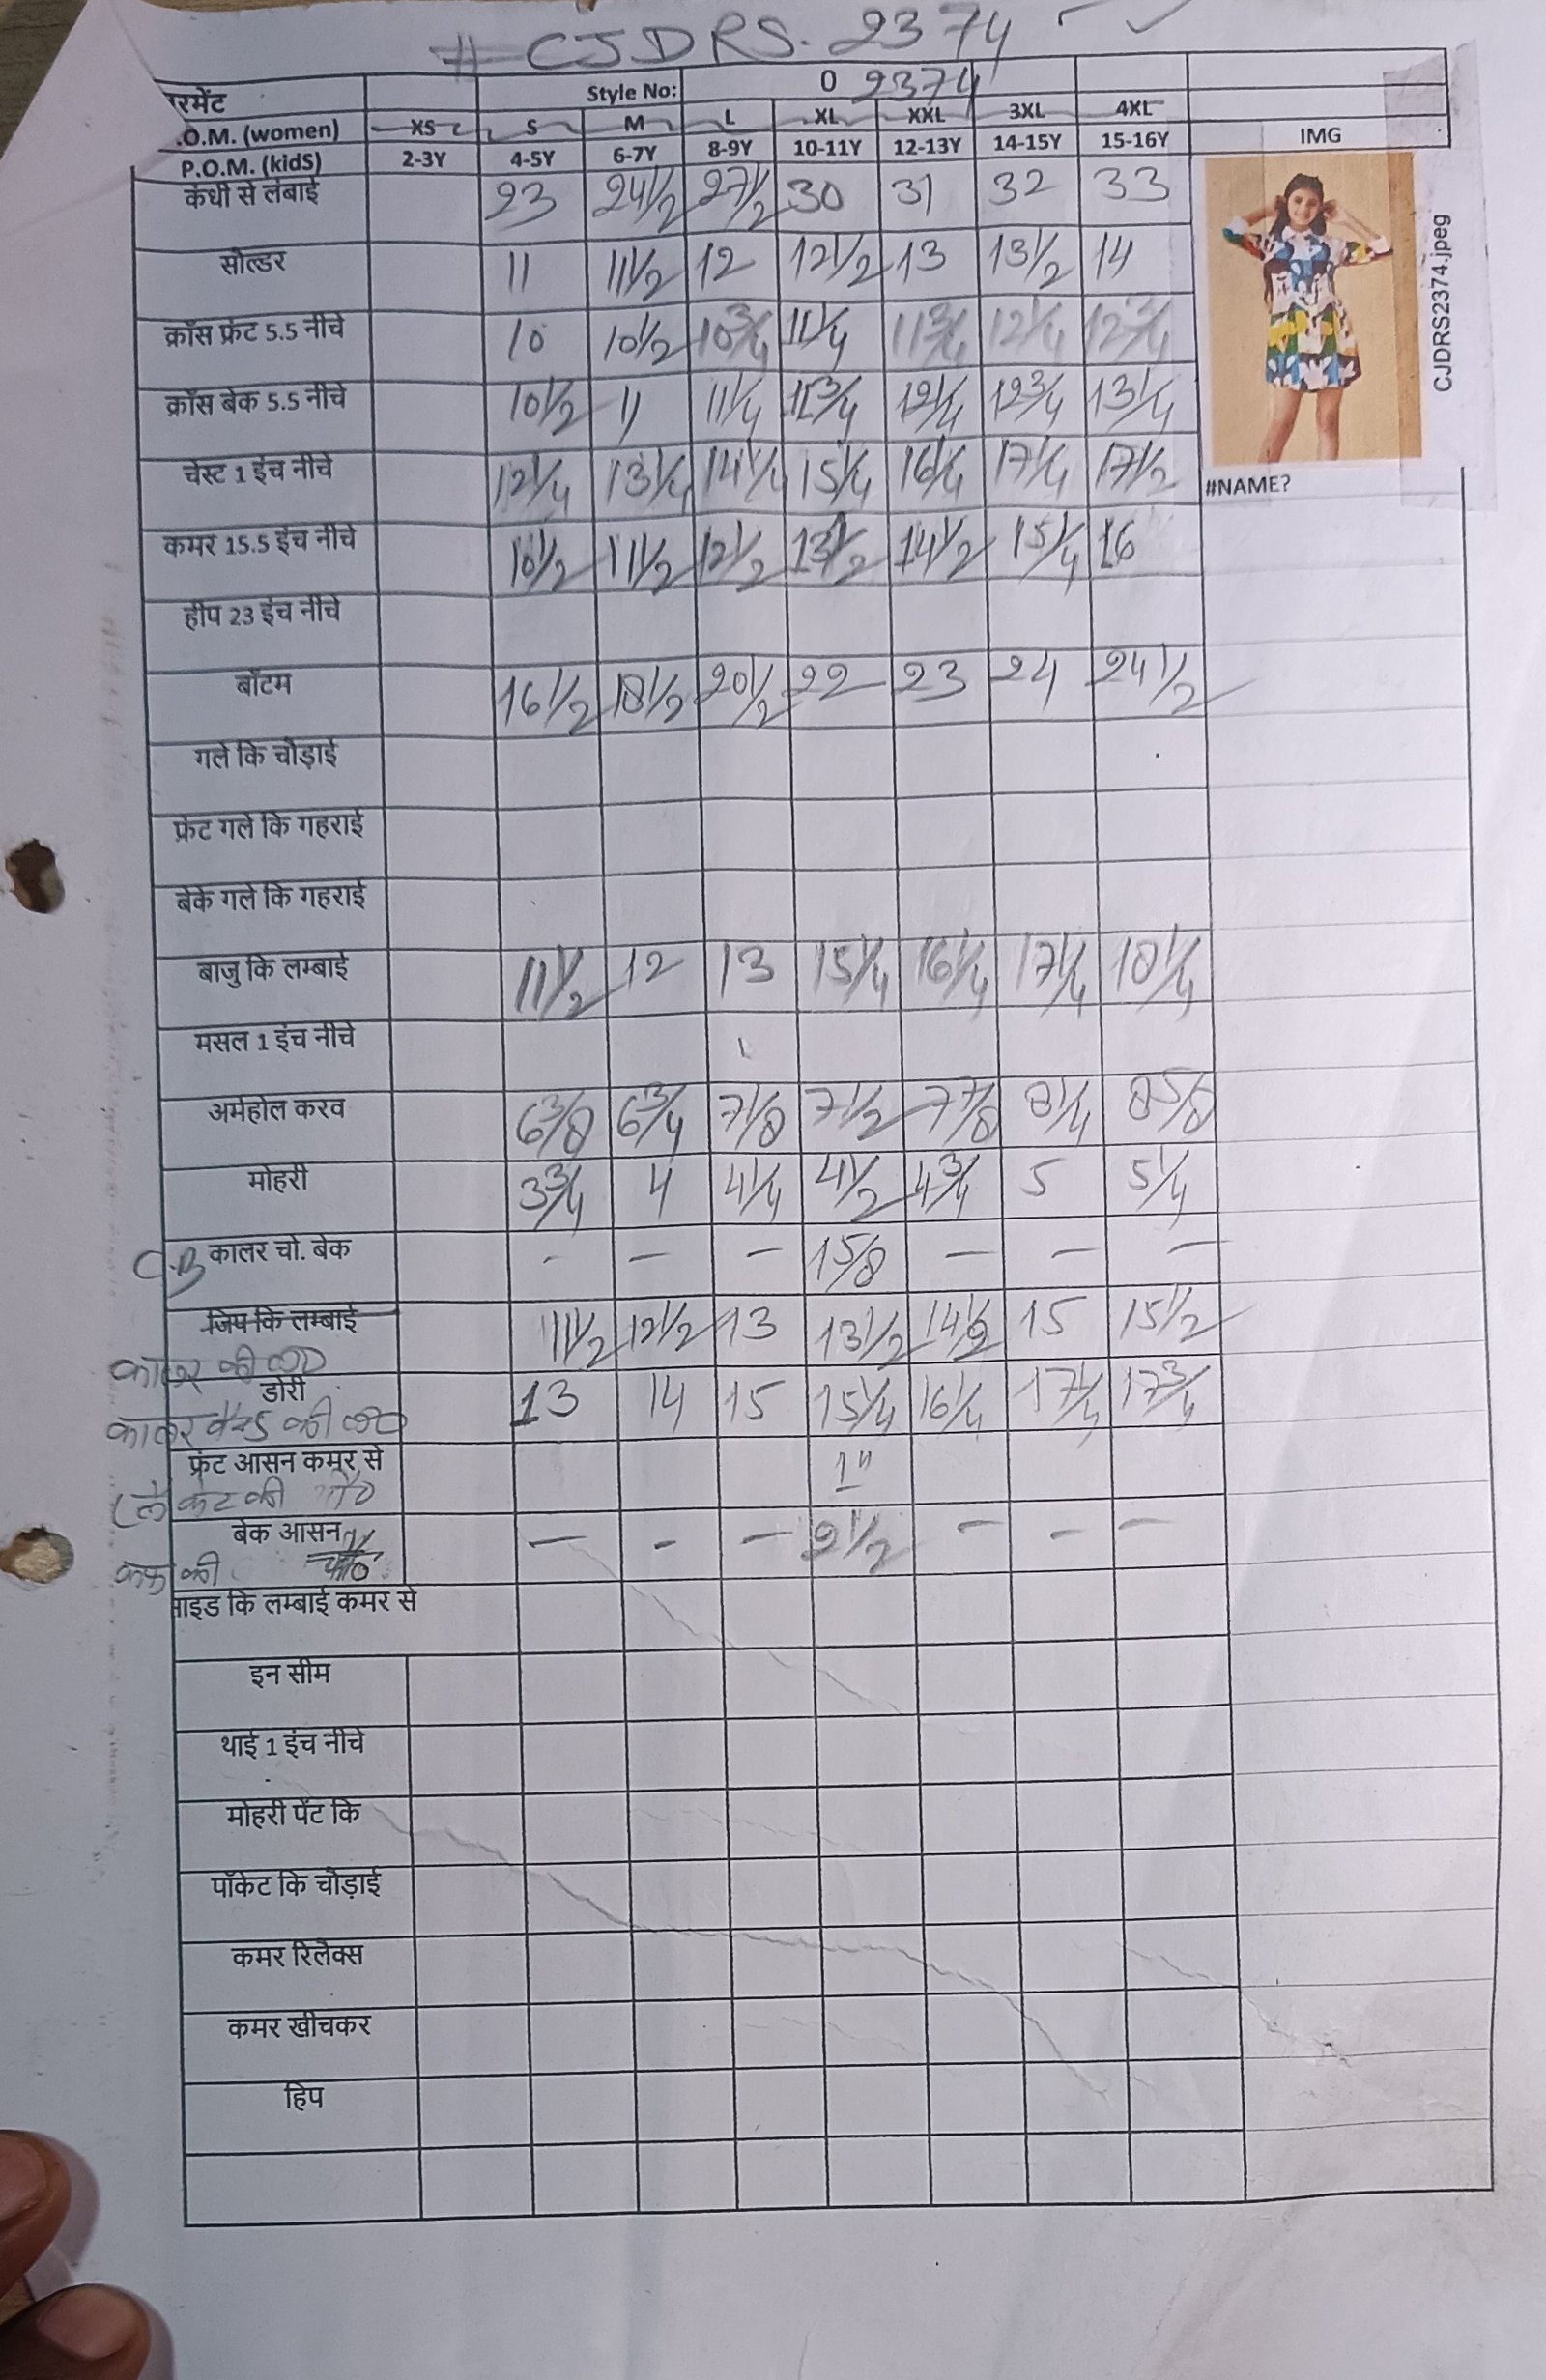 # CJDRS. 2374
रमेंट Style No: 0 2374
.O.M. (women) XS S M L XL XXL 3XL 4XL
P.O.M. (kidS) 2-3Y 4-5Y 6-7Y 8-9Y 10-11Y 12-13Y 14-15Y 15-16Y IMG
कंधी से लंबाई 23 24 1/2 27 1/2 30 31 32 33
सोल्डर 11 11 1/2 12 12 1/2 13 13 1/2 14
क्रॉस फ्रंट 5.5 नीचे 10 10 1/2 10 3/4 11 1/4 11 3/4 12 1/4 12 3/4
क्रॉस बेक 5.5 नीचे 10 1/2 11 11 1/4 11 3/4 12 1/4 12 3/4 13 1/4
चेस्ट 1 इंच नीचे 12 1/4 13 1/4 14 1/4 15 1/4 16 1/4 17 1/4 17 1/2
CJDRS2374.jpeg
#NAME?
कमर 15.5 इंच नीचे 10 1/2 11 1/2 12 1/2 13 1/2 14 1/2 15 1/4 16
हीप 23 इंच नीचे
बॉटम 16 1/2 18 1/2 20 1/2 22 23 24 24 1/2
गले कि चौड़ाई
फ्रंट गले कि गहराई
बेके गले कि गहराई
बाजु कि लम्बाई 11 1/2 12 13 15 1/4 16 1/4 17 1/4 18 1/4
मसल 1 इंच नीचे
अर्महोल करव 6 3/8 6 3/4 7 1/8 7 1/2 7 7/8 8 1/4 8 5/8
मोहरी 3 3/4 4 4 1/4 4 1/2 4 3/4 5 5 1/4
C.B कालर चो. बेक - - - 1 5/8 - - -
जिप कि लम्बाई 11 1/2 12 1/2 13 13 1/2 14 1/2 15 15 1/2
कालर की ल०
डोरी 13 14 15 15 1/4 16 1/4 17 1/4 17 3/4
कालर बैन्ड की ल०
फ्रंट आसन कमर से 1"
की चौ०
बेक आसन - - - 2 1/2 - - -
कफ की चौ०
ाइड कि लम्बाई कमर से
इन सीम
थाई 1 इंच नीचे
मोहरी पेंट कि
पॉकेट कि चौड़ाई
कमर रिलेक्स
कमर खीचकर
हिप